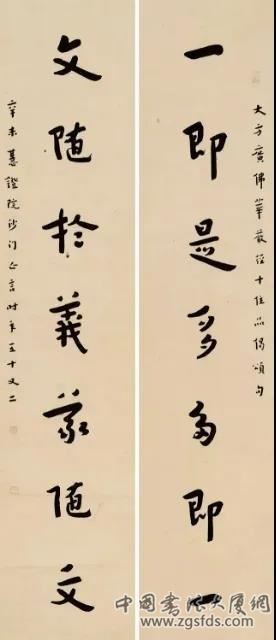 大方廣佛華嚴經十住品偈頌句
一即是多多即一
文随扵義義随文
辛未慧證院沙门亡言時年五十又二
中國書法大厦網
www.zgsfds.com